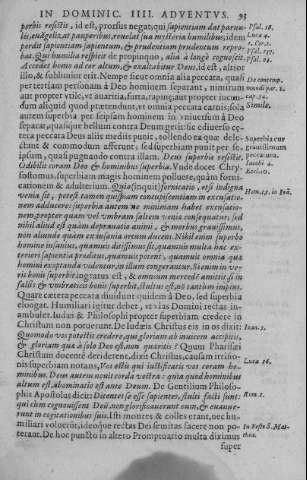 IN DOMINIC. IIII. ADVENTVS. 93
perbis resistit, id est, prorsus negat, qui sapientiam dat paruu-
lis, euãgelizat pauperibus, reuelat sua mysteria humilibus, idem
perdit sapientiam sapientum, & prudentiam prudentum repro-
bat. Qui humilia respicit de propinquo, alta à longè cognoscit.
Accedet homo ad cor altum, & exaltabitur Deus, id est, altior
illo, & sublimior erit. Nempe sicut omnia alia peccata, quasi
per tertiam personam à Deo hominem separant, nimirum
aut propter vile, vt auaritia, furta, rapinæ, aut propter iucun-
dum aliquid quod prætendunt, vt omnia peccata carnis: sola
autem superbia per seipsam hominem à Deo
separat, quia ipse bellum contra Deum gerit: sic è diuerso cæ-
tera peccata Deus aliis mediis punit,
& commodum afferunt, sed superbiam punit per se-
ipsum, quasi pugnando contra illam. Deus superbis resistit.
Odibilis coram Deo & hominibus superbia. Vnde docet Chry-
sostomus, superbiam magis hominem polluere, quàm forni-
cationem & adulterium. Quia (inquit) fornicatio, etsi indigna
venia sit, potest tamen quispiam concupiscentiam in excusatio-
nem adducere: superbia autem ne minimam habet excusatio-
nem, propter quam vel vmbram saltem venia consequatur, sed
nihil aliud est quàm deprauatio animi, & morbus grauissimus,
non aliunde quàm ex insania ortum ducens. Nihil enim superbo
homine insanius, quamuis ditissimus sit, quamuis multa hac ex-
teriori sapientia præditus, quamuis potens, quamuis omnia quæ
homini exoptanda videntur, in illum congerantur. Si enim in ve-
ris bonis superbit, ingratus est, & omnem mercedẽ amittit, si in
falsis & vmbraticis bonis superbit, stultus est, ob tantum impius.
Quare cætera peccata diuidunt quidem à Deo, sed superbia
elongat. Humiliari igitur debet, vt vias Domini rectas in-
ambulet. Iudæi & Philosophi propter superbiam credere in
Christum non potuerunt. De Iudæis Christus eis in os dixit:
Quomodo vos potestis credere, qui gloriam ab inuicem accipitis,
& gloriam quæ à solo Deo est, non quæritis? Quum Pharisæi
Christum docentẽ deriderent, dixit Christus, causam irrisio-
nis superbiam notans, Vos estis qui iustificatis vos coram ho-
minibus. Deus autem nouit corda vestra: quia quod hominibus
altum est, abominatio est ante Deum. De Gentilium Philoso-
phis Apostolus dicit: Dicentes se esse sapientes, stulti facti sunt:
qui cùm cognouissent Deũ, non glorificauerunt eum, & euanue-
runt in cogitationibus suis. Isti montes & colles erant, nec hu-
miliari voluerũt, ideoque rectas Dei semitas facere non po-
terant. De hoc puncto in altero Promptuario multa diximus
super
Psal. 18.
Luca 4.
1. Cor. 1.
Psal. 137.
Psal. 63.
De contemp.
mundi par. 2.
cap. 34.
Simile.
Superbia cur
grauissimum
peccatum.
Iacob. 4.
Eccl. 10.
Hom. 15. in Ioã.
Ioan. 5.
Luca 16.
Rom. 1.
In Festo S. Mat-
thæi.